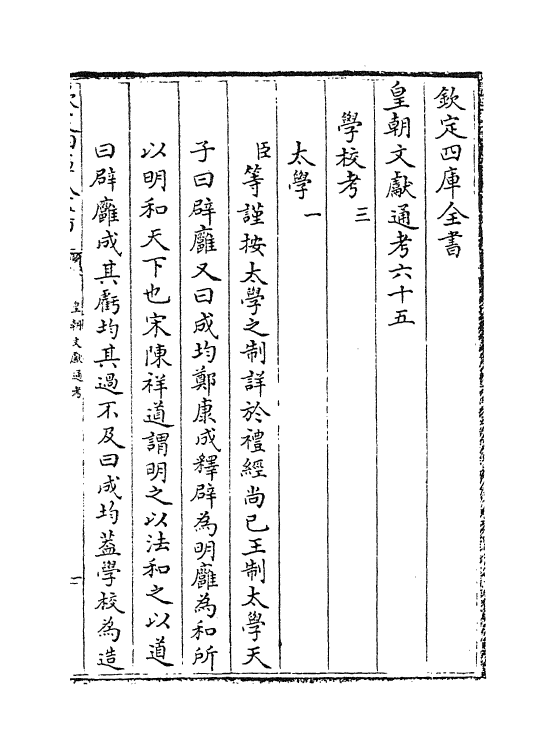 欽定四庫全書
皇朝文獻通考六十五
學校考三
太學一
臣等謹按太學之制詳於禮經尚已王制太學天
子曰辟廱又曰成均鄭康成釋辟為明廱為和所
以明和天下也宋陳祥道謂明之以法和之以道
曰辟廱成其虧均其過不及曰成均葢學校為造
皇朝文獻通考
一